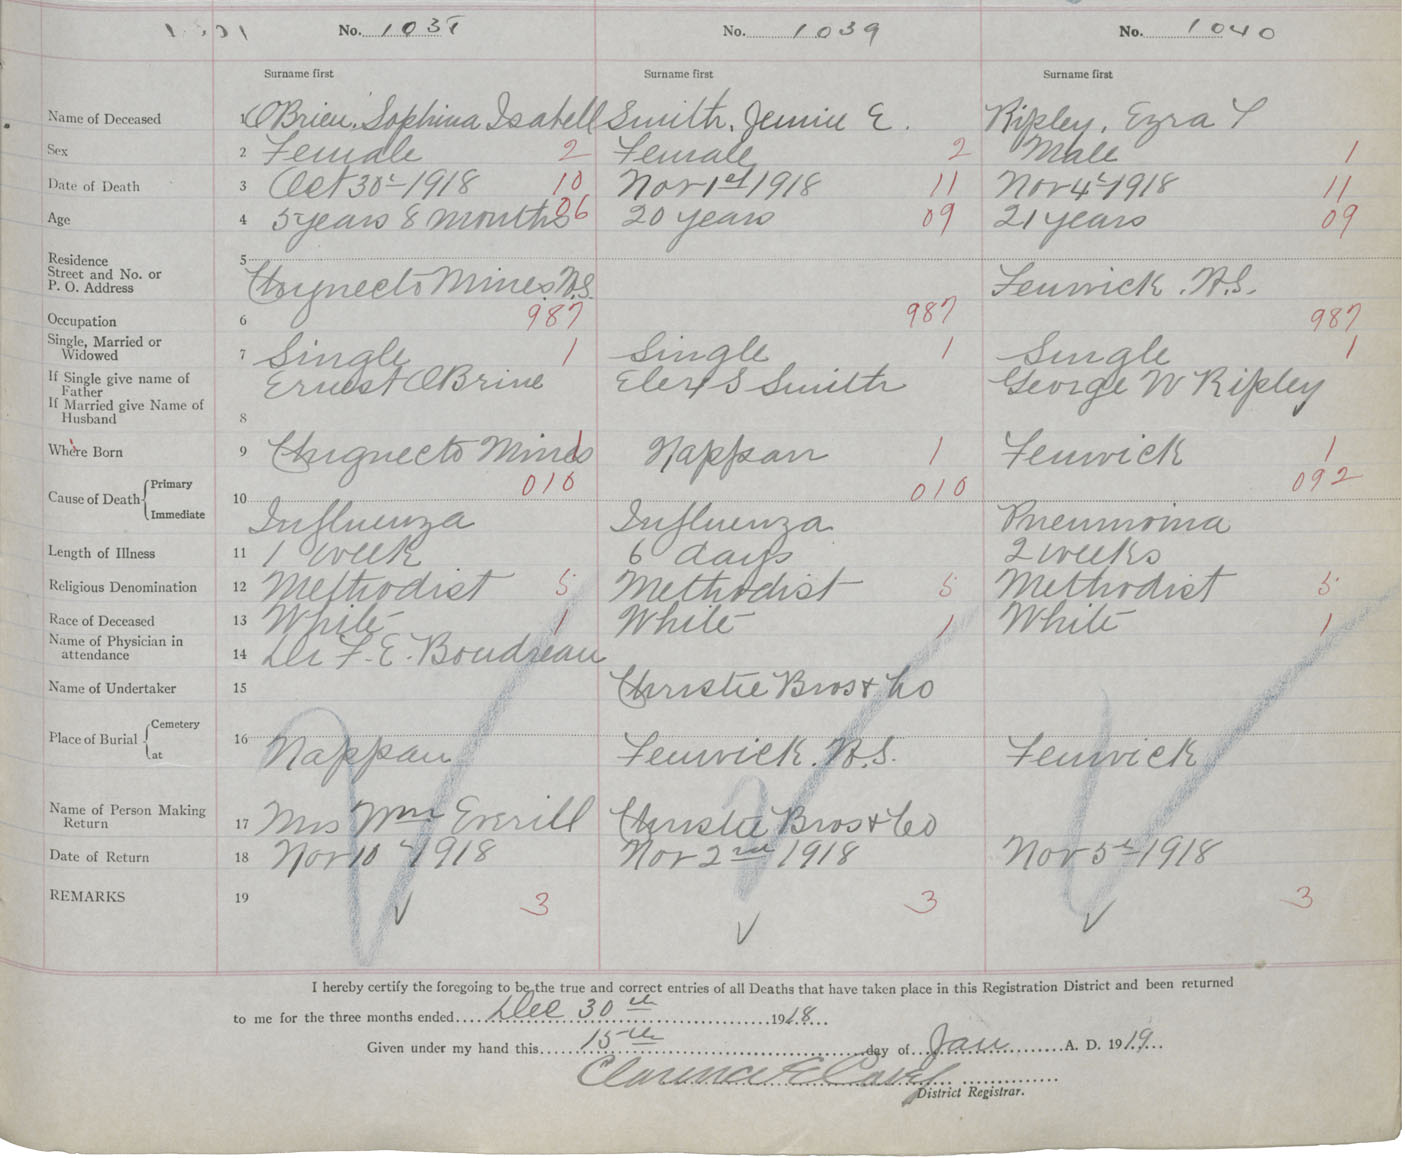 No. 1038 No. 1039 No. 1040
Surname first Surname first Surname first
Name of Deceased 1 O'Brien, Sophina Isabell Smith, Jennie E. Ripley, Ezra T
Sex 2 Female 2 Female 2 Male 1
Date of Death 3 Oct 30th 1918 10 Nov 1st 1918 11 Nov 4th 1918 11
Age 4 5 years 8 months 06 20 years 09 21 years 09
Residence
Street and No. or
P. O. Address 5 Chignecto Mines N.S. Fenwick. N.S.
Occupation 6 987 987 987
Single, Married or
Widowed 7 Single 1 Single 1 Single 1
If Single give name of
Father Ernest OBrine S Smith George W Ripley
If Married give Name of
Husband 8
Where Born 9 Chignecto Mines 1 Nappan 1 Fenwick 1
010 010 092
Cause of Death Primary
Immediate 10 Influenza Influenza Pneumonia
Length of Illness 11 1 week 6 days 2 weeks
Religious Denomination 12 Methodist 5 Methodist 5 Methodist 5
Race of Deceased 13 White 1 White 1 White 1
Name of Physician in
attendance 14 Dr F. E. Boudreau
Name of Undertaker 15 Christie Bros & Co
Place of Burial Cemetery
at 16 Nappan Fenwick. N.S. Fenwick
Name of Person Making
Return 17 Mrs Wm Everill Christie Bros & Co
Date of Return 18 Nov 10th 1918 Nov 2nd 1918 Nov 5th 1918
REMARKS 19 3 3 3
I hereby certify the foregoing to be the true and correct entries of all Deaths that have taken place in this Registration District and been returned
to me for the three months ended Dec 30th 1918
Given under my hand this 15th day of Jan A. D. 1919
Clarence E
District Registrar.